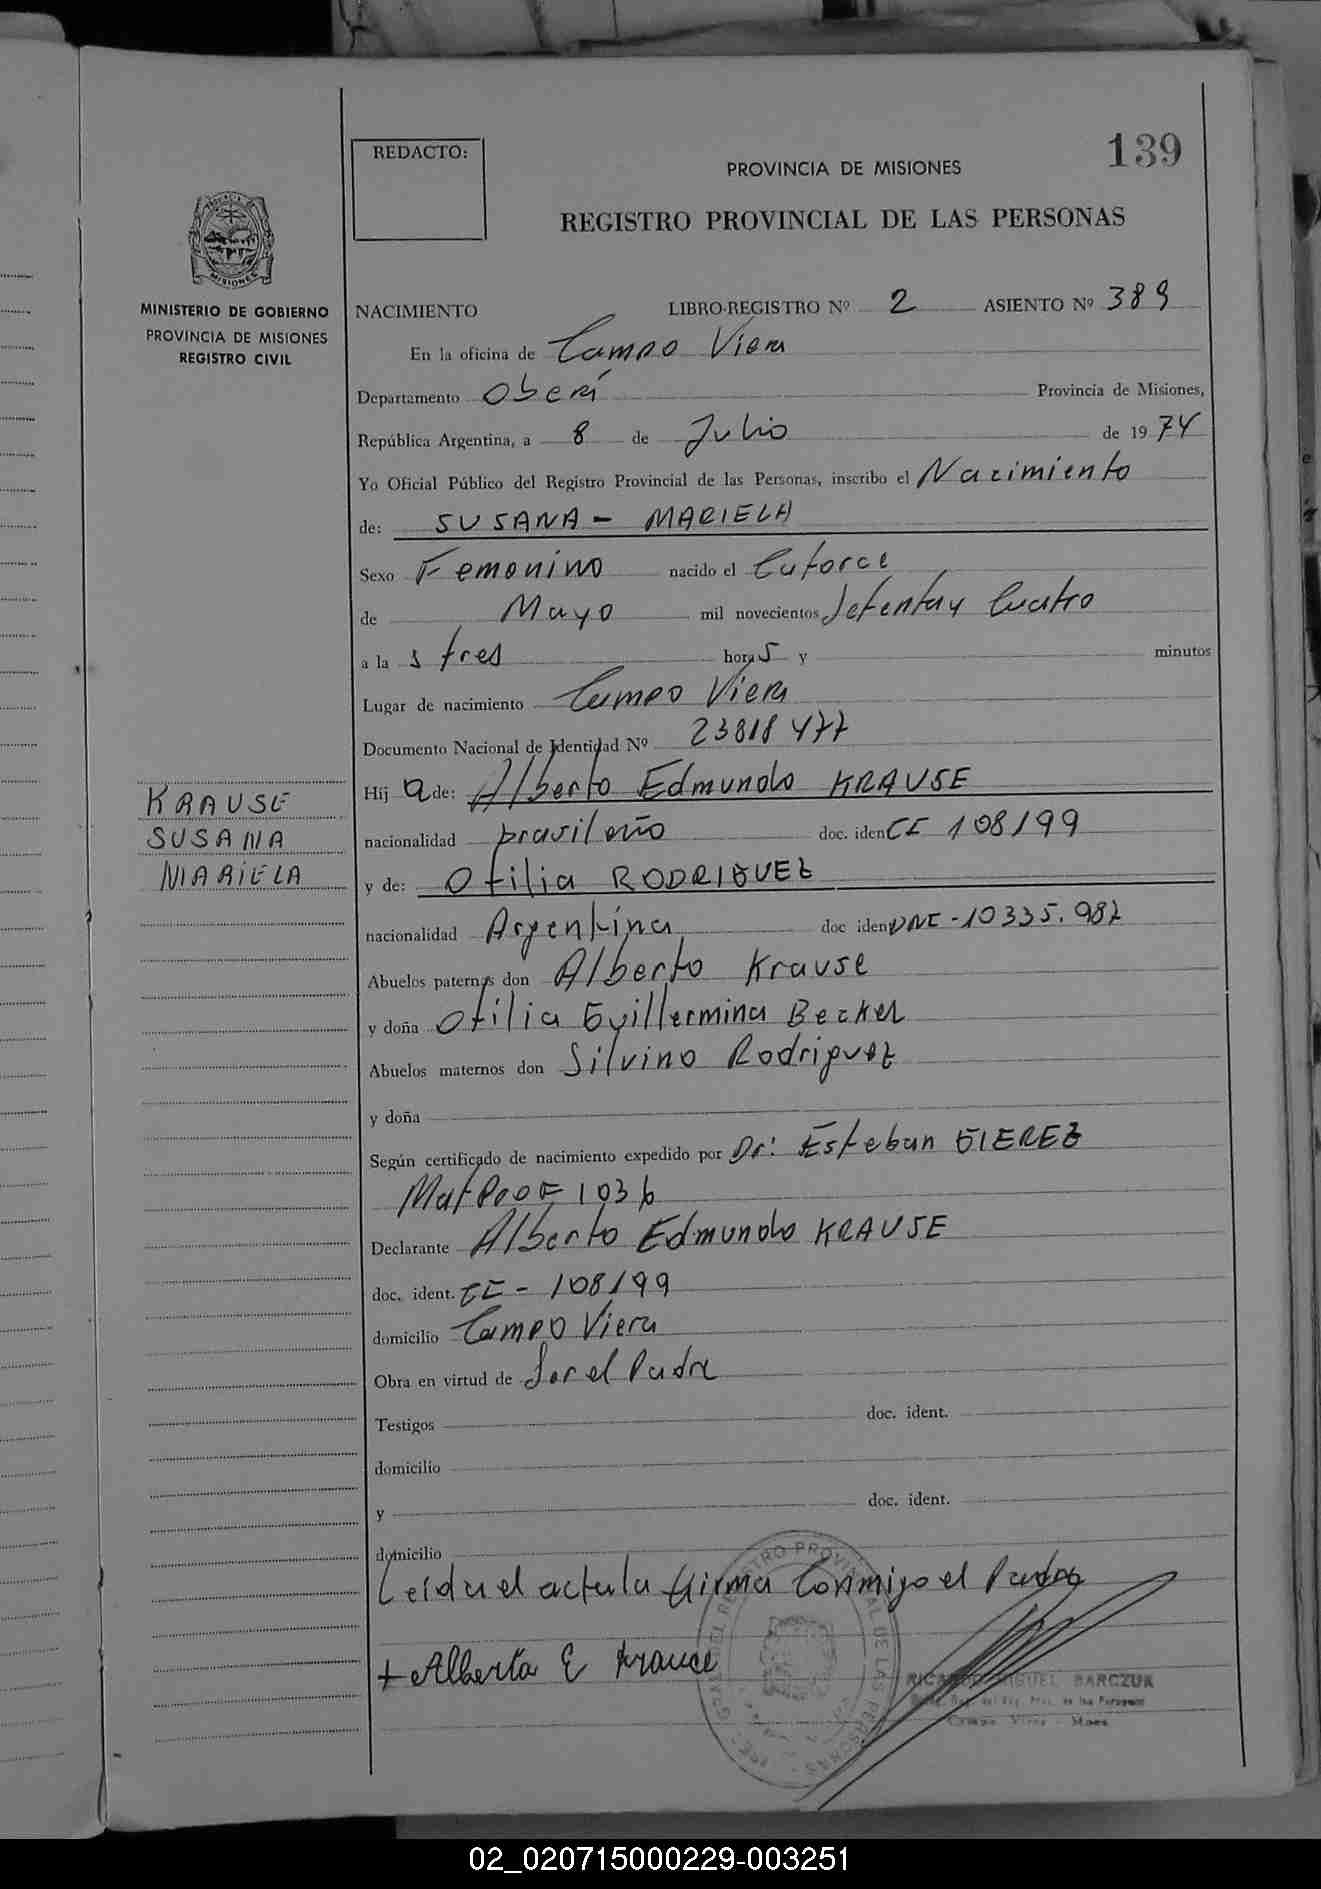 139
REDACTO:
PROVINCIA DE MISIONES
REGISTRO PROVINCIAL DE LAS PERSONAS
MISIONES
MINISTERIO DE GOBIERNO
PROVINCIA DE MISIONES
REGISTRO CIVIL
NACIMIENTO LIBRO-REGISTRO Nº 2 ASIENTO Nº 389
En la oficina de Campo Viera
Departamento Oberá Provincia de Misiones,
República Argentina, a 8 de Julio de 1974
Yo Oficial Público del Registro Provincial de las Personas, inscribo el Nacimiento
de: SUSANA - MARIELA
Sexo Femenino nacido el Catorce
de Mayo mil novecientos Setenta y Cuatro
a la s tres horas y minutos
Lugar de nacimiento Campo Viera
Documento Nacional de Identidad Nº 23818477
KRAUSE
SUSANA
MARIELA
Hij a de: Alberto Edmundo KRAUSE
nacionalidad brasileño doc. iden CI 108199
y de: Otilia RODRIGUEZ
nacionalidad Argentina doc iden DNI - 10335.982
Abuelos paternos don Alberto Krause
y doña Otilia Guillermina Becker
Abuelos maternos don Silvino Rodriguez
y doña
Según certificado de nacimiento expedido por Dr: Esteban GIEREZ
Mat Prof 1036
Declarante Alberto Edmundo KRAUSE
doc. ident. CI - 108199
domicilio Campo Viera
Obra en virtud de Ser el Padre
Testigos doc. ident.
domicilio
y doc. ident.
domicilio
Leida el acta la firma Conmigo el Padre
+ Alberto E Krause
REGISTRO PROVINCIAL DE LAS PERSONAS
RICARDO MIGUEL BARCZUK
Campo Viera - Mnes
02_020715000229-003251